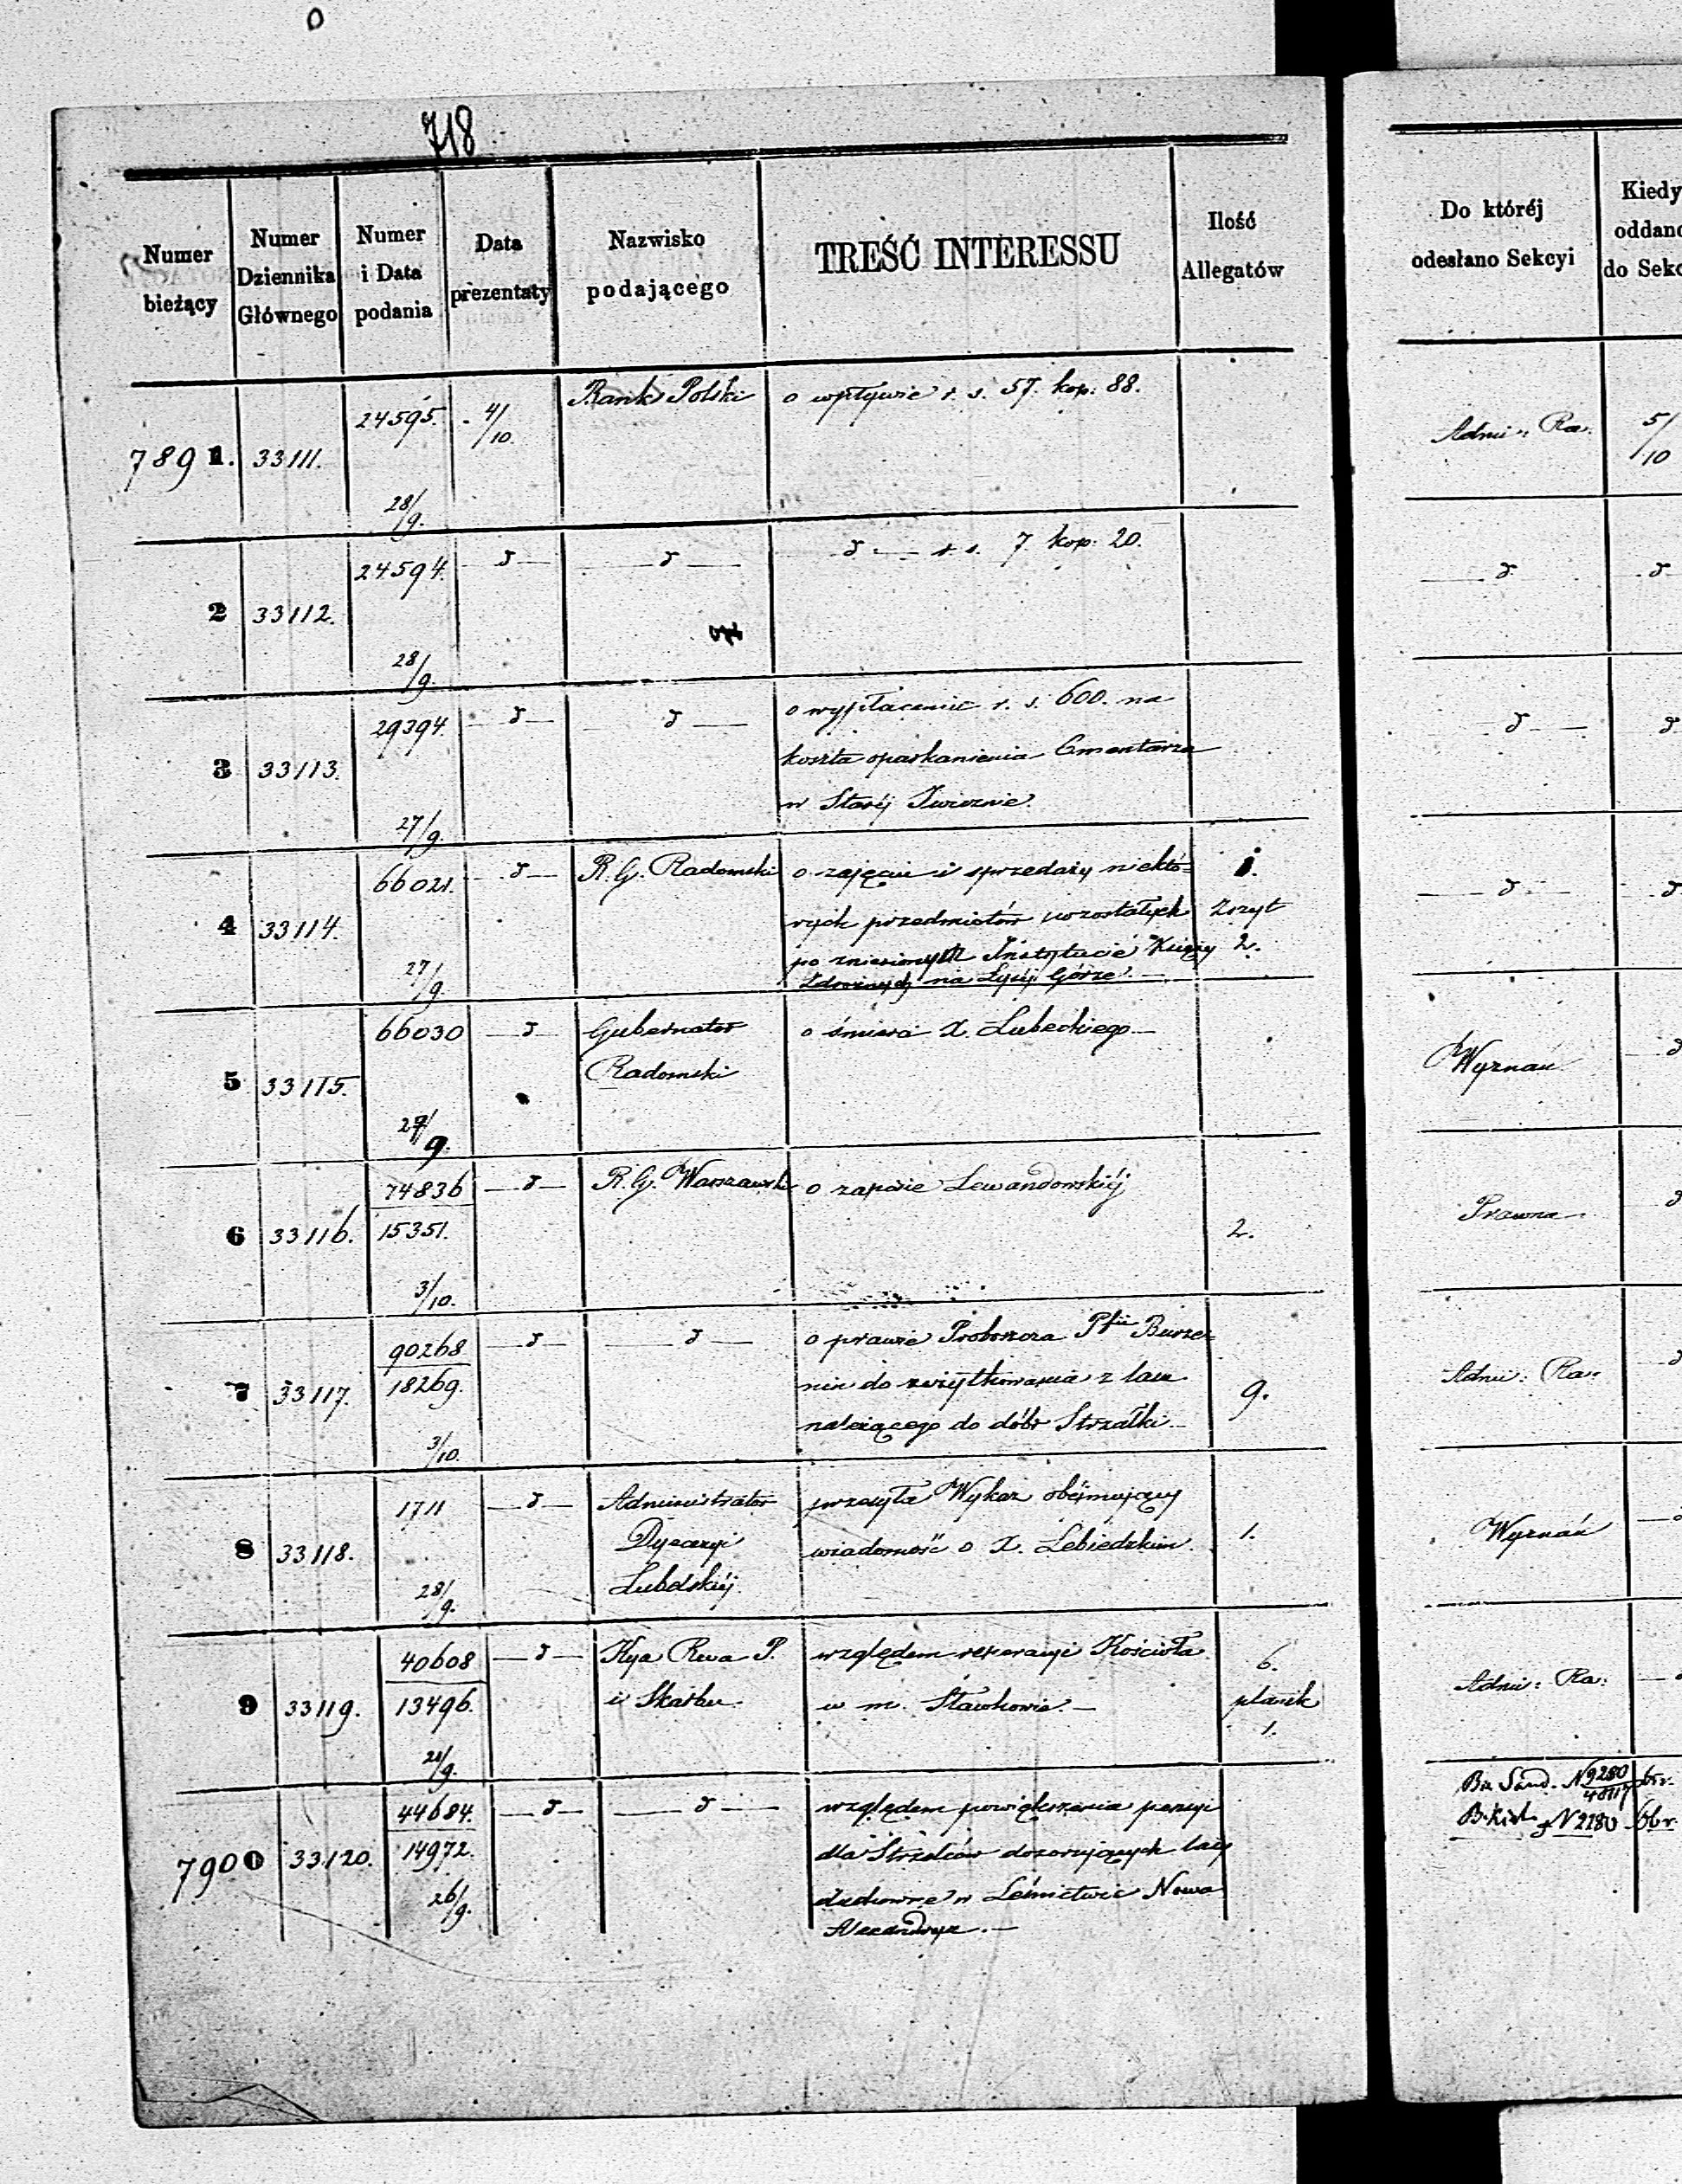 718
Numer bieżący
Numer Dziennika Głównego
Numer i Data podania
Data prezentaty
Nazwisko podającego
TREŚĆ INTERESSU
Ilość Allegatów
Do któréj odesłano Sekcyi
Kiedy oddano do Sekc
7891. 33111. 24595. 28/9. 4/10. Bank Polski o wpływie r. s. 57. kop: 88. Admi: Ra: 5/10
2 33112. 24594. 28/9. — d — — d — — d — r. s. 7. kop: 20. — d — — d
3 33113. 29394. 27/9. — d — — d — o wypłacenie r. s. 600. na
koszta oparkanienia Cmentarza
w Staréj — d — d
4 33114. 66021. 27/9. — d — R. G. Radomski o zajęciu i sprzedaży niektó=
rych przedmiotów pozostałych
po zniesionym Instytucie Księży
Zdrożnych na Łyséj Górze. —
1.
Zszyt
2.
— d — — d
5 33115. 66030 29/9. — d — Gubernator
Radomski
o śmierci X. Lubeckiego — Wyznań — d
6 33116. 74836
15351.
3/10. — d — R. G. Warszawski o zapisie Lewandowskiéj 2. Prawna d
7 33117. 90268
18269.
3/10. — d — — d — o prawie Proboszcza Pfii Burze=
nin do użytkowania z lasu
należącego do dóbr Strzałki —
9. Admi: Ra: — d
8 33118. 1711 28/9. — d — Administrator
Dyecezyi
Lubelskiéj.
przesyła Wykaz obejmujący
wiadomość o X. Lebiedzkim.
1. Wyznań
9 33119. 40608
13496.
21/9. — d — Kya Rwa P.
i Skarbu.
względem reperacyi Kościoła
w m. Sławkowie. —
6.
planik
1.
Admi: Ra:
7900 33120. 44684.
14972.
26/9. — d — — d — względem powiększenia pensyi
dla Strzelców dozorujących lasy
duchowne w Leśnictwie Nowa
Alexandrya. —
Sand. N 9280
N 2280